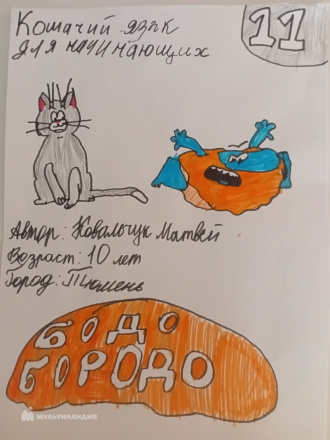 Кошачий язык
для начинающих
11
Автор: Ковальчук Матвей
Возраст: 10 лет
Город: Тюмень
БОДО
БОРОДО
МУЛЬТИЛАНДИЯ